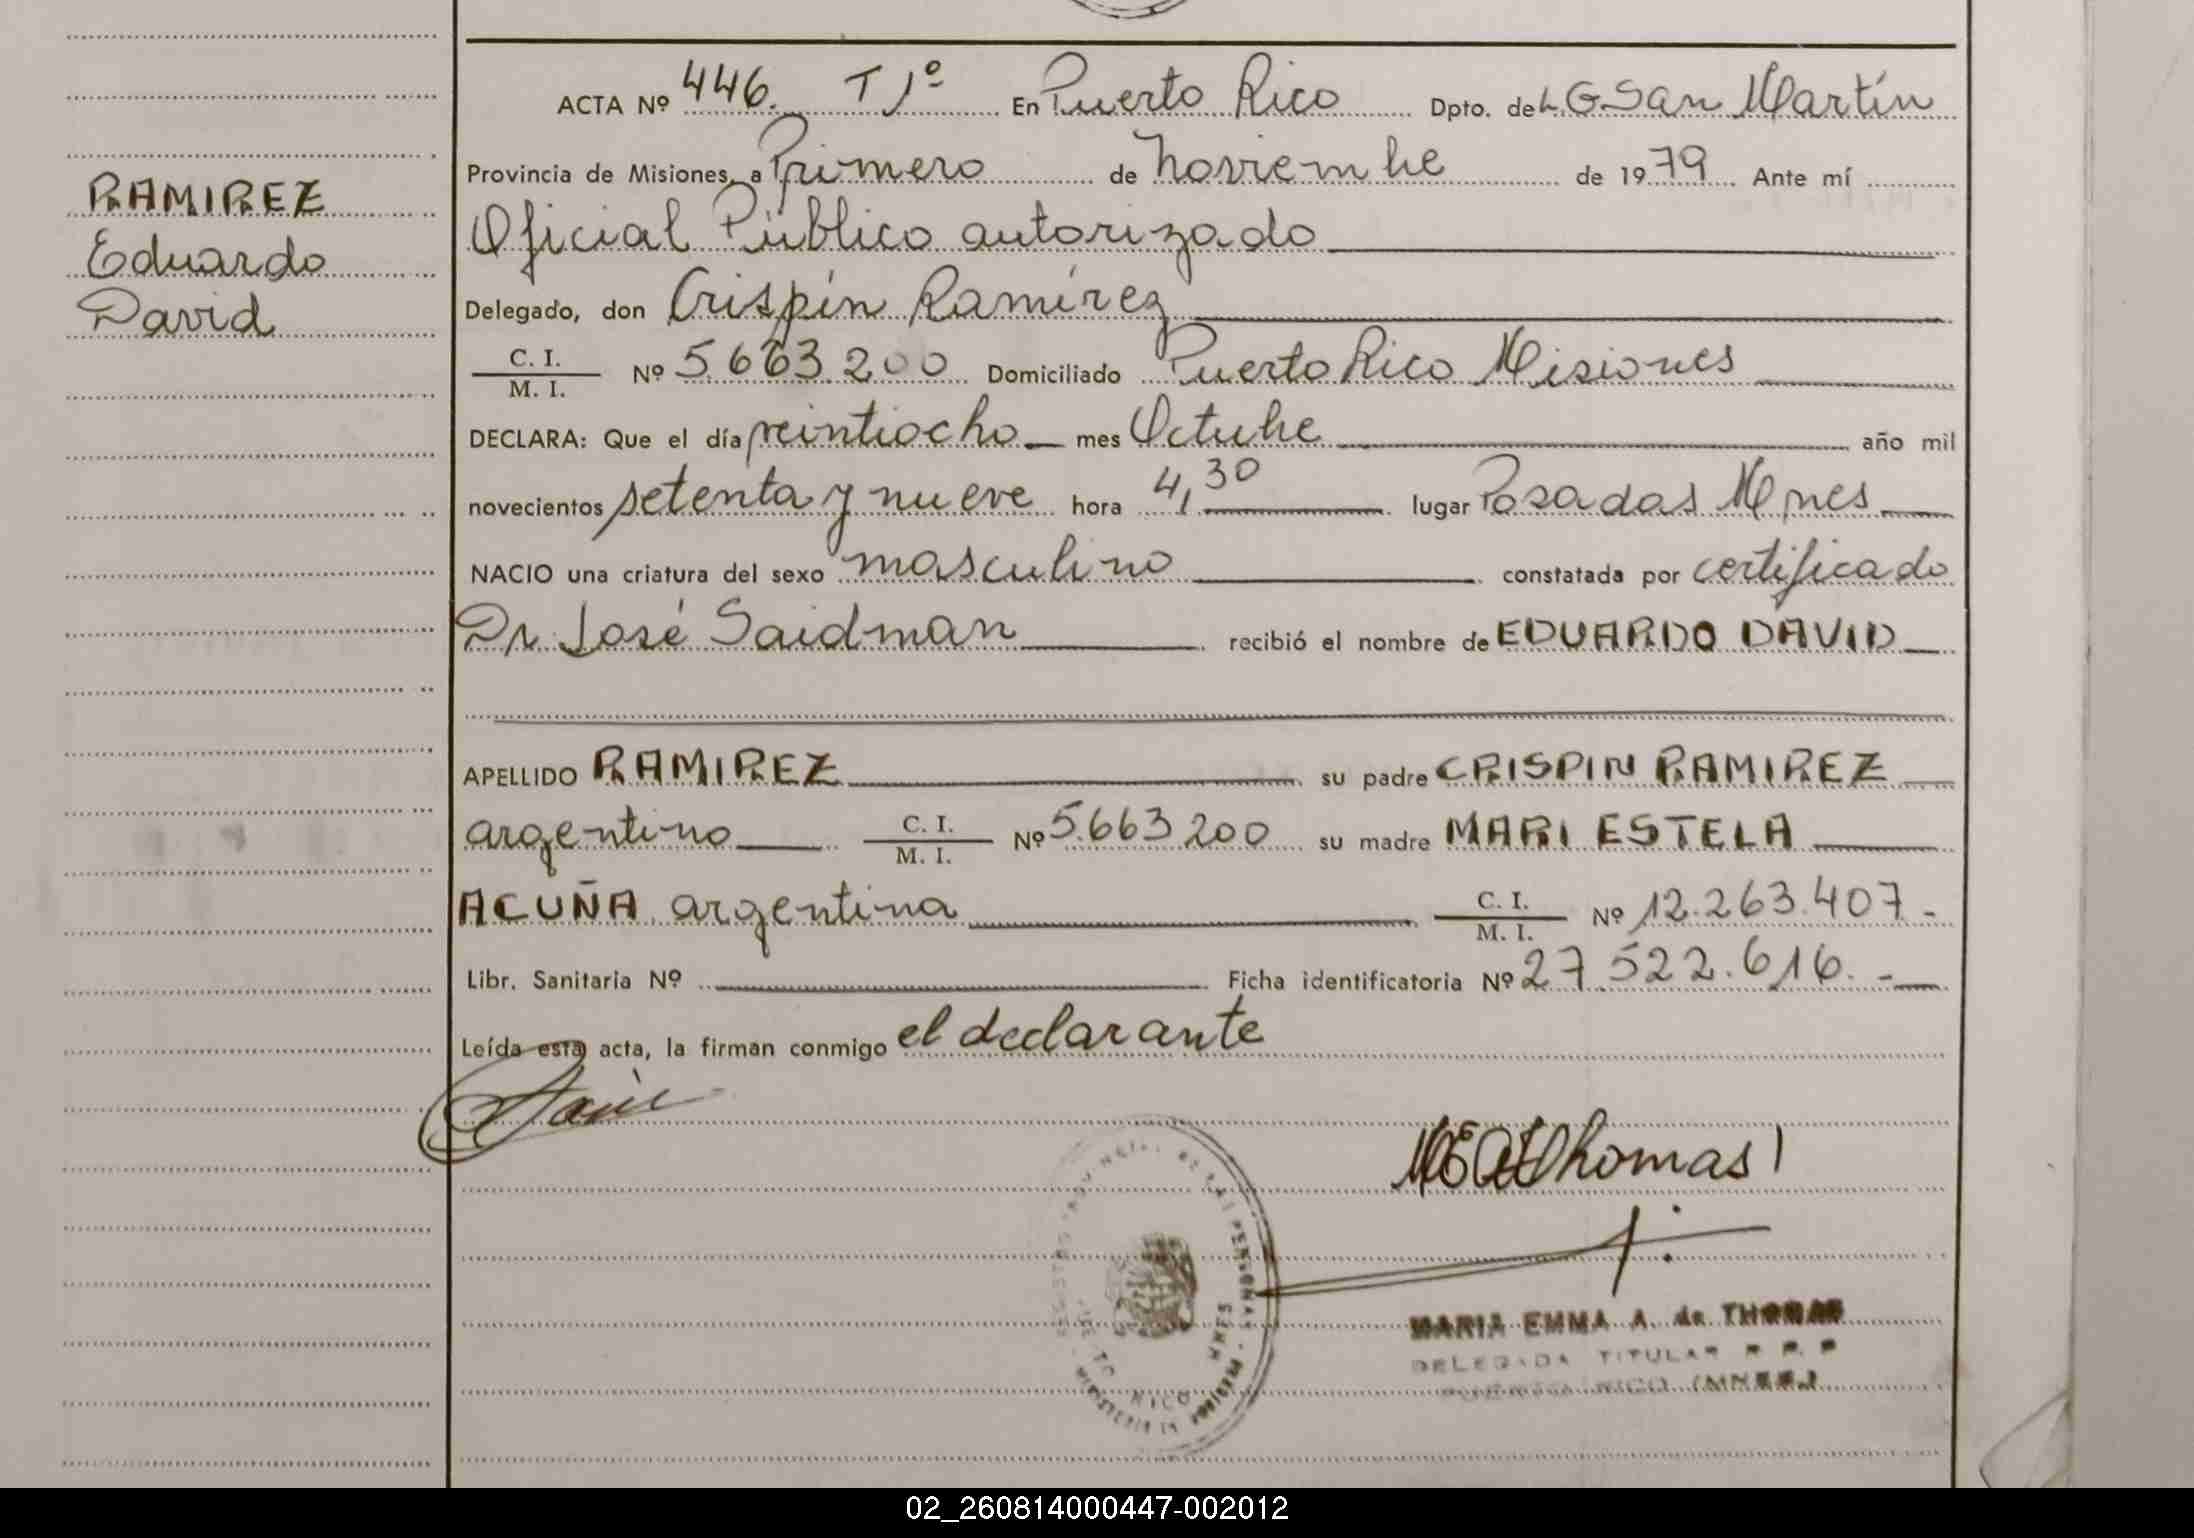 RAMIREZ
Eduardo
David
ACTA Nº 446. T 1º En Puerto Rico Dpto. de L. G San Martín
Provincia de Misiones, a Primero de Noviembre de 1979 Ante mí
Oficial Público autorizado
Delegado, don Crispín Ramírez
C. I.
M. I. Nº 5.663.200 Domiciliado Puerto Rico Misiones
DECLARA: Que el día veintiocho mes Octubre año mil
novecientos setenta y nueve hora 4,30 lugar Posadas Mnes
NACIO una criatura del sexo masculino constatada por certificado
Dr. José Saidman recibió el nombre de EDUARDO DAVID
APELLIDO RAMIREZ su padre CRISPIN RAMIREZ
argentino C. I.
M. I. Nº 5.663.200 su madre MARI ESTELA
ACUÑA argentina C. I.
M. I. Nº 12.263.407.-
Libr. Sanitaria Nº Ficha identificatoria Nº 27.522.616.-
Leída esta acta, la firman conmigo el declarante
Thomas
MARIA EMMA A. de THOMAS
DELEGADA TITULAR R. P. P
PUERTO RICO (MNES.)
02_260814000447-002012